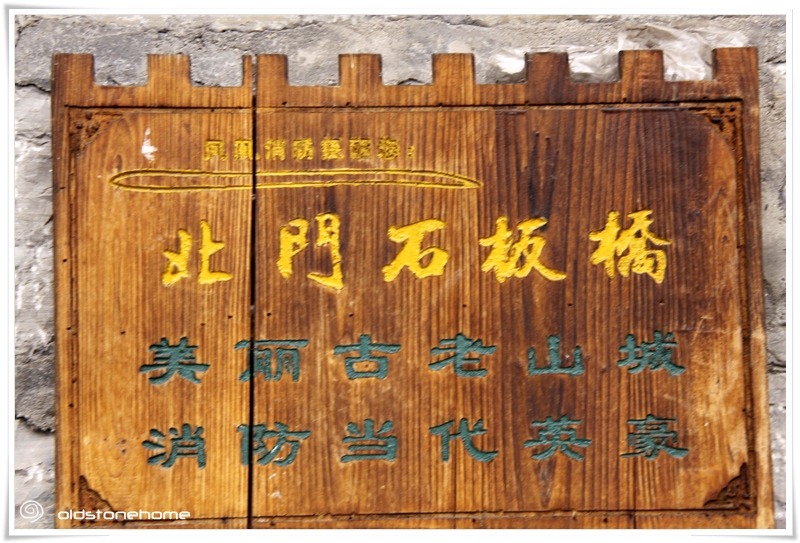 凤凰消防提醒您：
北門石板橋
美丽古老山城
消防当代英豪
oldstonehome